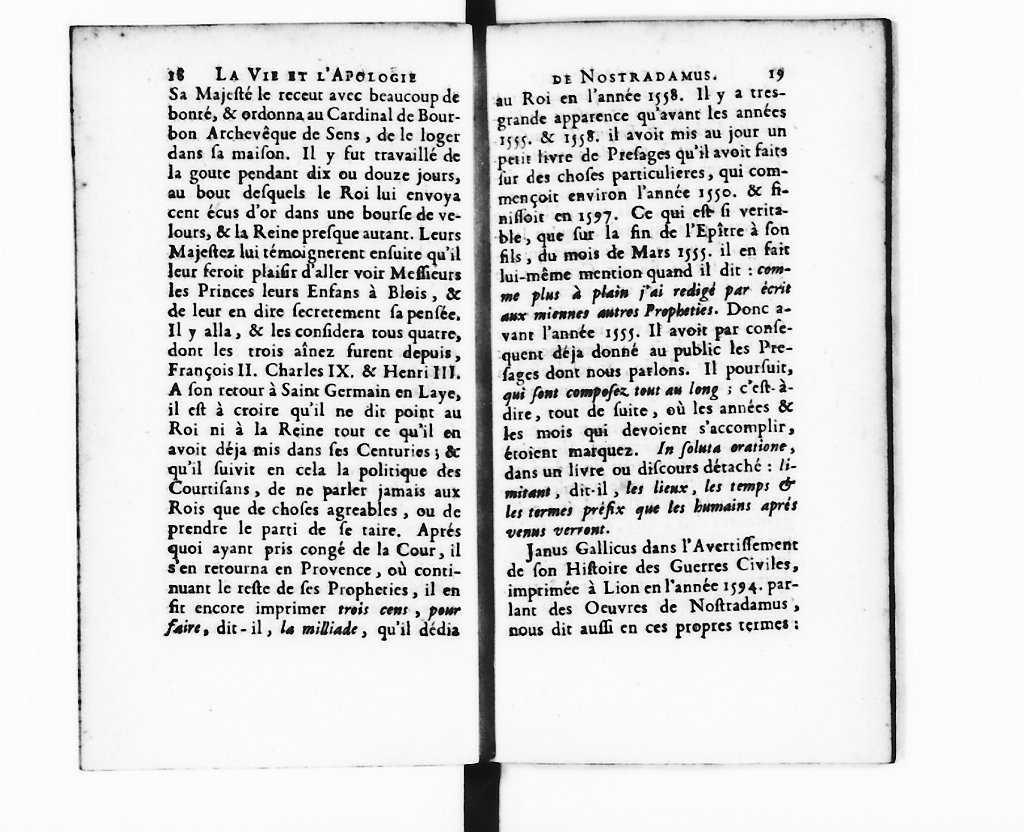 18 LA VIE ET L'APOLOGIE
Sa Majeſté le receut avec beaucoup de
bonté, & ordonna au Cardinal de Bour-
bon Archevêque de Sens, de le loger
dans ſa maiſon. Il y fut travaillé de
la goute pendant dix ou douze jours,
au bout deſquels le Roi lui envoya
cent écus d'or dans une bourſe de ve-
lours, & la Reine preſque autant. Leurs
Majeſtez lui témoignerent enſuite qu'il
leur feroit plaiſir d'aller voir Meſſieurs
les Princes leurs Enfans à Blois, &
de leur en dire ſecretement ſa penſée.
Il y alla, & les conſidera tous quatre,
dont les trois aînez furent depuis,
François II. Charles IX. & Henri III.
A ſon retour à Saint Germain en Laye,
il eſt à croire qu'il ne dit point au
Roi ni à la Reine tout ce qu'il en
avoit déja mis dans ſes Centuries; &
qu'il ſuivit en cela la politique des
Courtiſans, de ne parler jamais aux
Rois que de choſes agreables, ou de
prendre le parti de ſe taire. Aprés
quoi ayant pris congé de la Cour, il
s'en retourna en Provence, où conti-
nuant le reſte de ſes Propheties, il en
fit encore imprimer trois cens, pour
faire, dit-il, la milliade, qu'il dédia
DE NOSTRADAMUS. 19
au Roi en l'année 1558. Il y a tres-
grande apparence qu'avant les années
1555. & 1558. il avoit mis au jour un
petit livre de Preſages qu'il avoit faits
ſur des choſes particulieres, qui com-
mençoit environ l'année 1550. & fi-
niſſoit en 1597. Ce qui eſt ſi verita-
ble, que ſur la fin de l'Epître à ſon
fils, du mois de Mars 1555. il en fait
lui-même mention quand il dit : com-
me plus à plain j'ai redigé par écrit
aux miennes autres Propheties. Donc a-
vant l'année 1555. Il avoit par conſe-
quent déja donné au public les Pre-
ſages dont nous parlons. Il pourſuit,
qui ſont compoſez tout au long ; c'eſt-à-
dire, tout de ſuite, où les années &
les mois qui devoient s'accomplir,
étoient marquez. In ſoluta oratione,
dans un livre ou diſcours détaché : li-
mitant, dit-il, les lieux, les temps &
les termes préfix que les humains aprés
venus verront.
Janus Gallicus dans l'Avertiſſement
de ſon Hiſtoire des Guerres Civiles,
imprimée à Lion en l'année 1594. par-
lant des Oeuvres de Noſtradamus,
nous dit auſſi en ces propres termes :